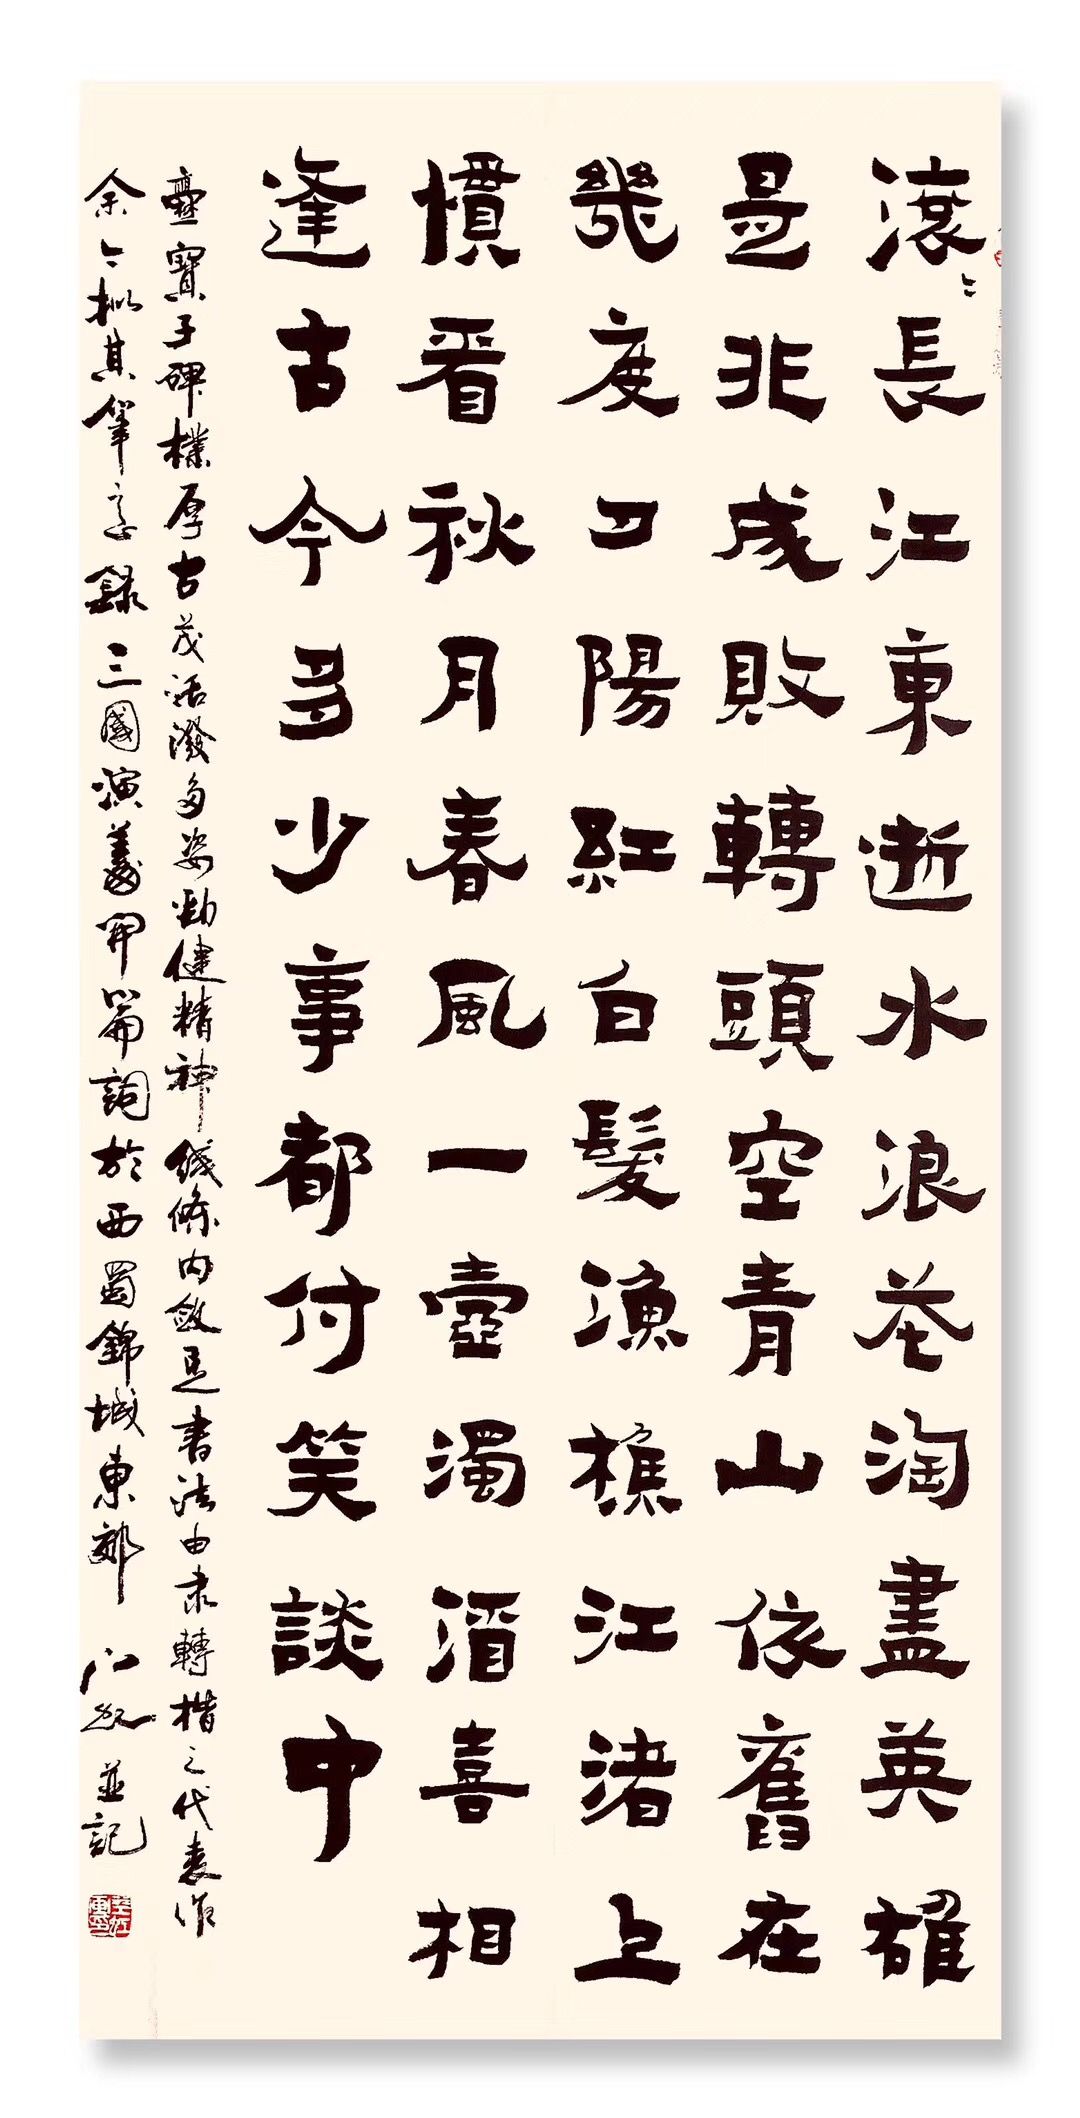 滾〻長江東逝水浪花淘盡英雄
是非成敗轉頭空青山依舊在
幾度夕陽紅白髮漁樵江渚上
慣看秋月春風一壺濁酒喜相
逢古今多少事都付笑談中
爨寶子碑樸厚古茂活潑多姿勁健精神綫條内斂是書法由隶轉楷之代表作
余〻擬其筆意錄三國演義開篇詞於西蜀錦城東郊 並記